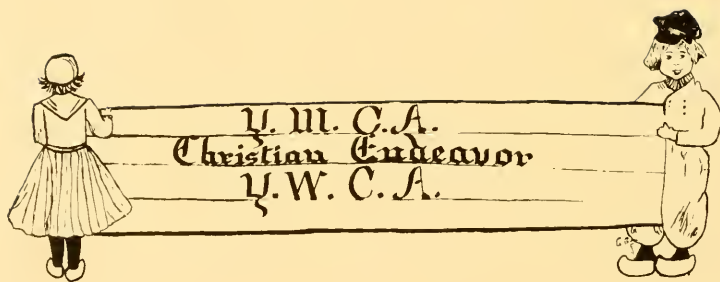 Y. M. C. A.
Christian Endeavor
Y. W. C. A.